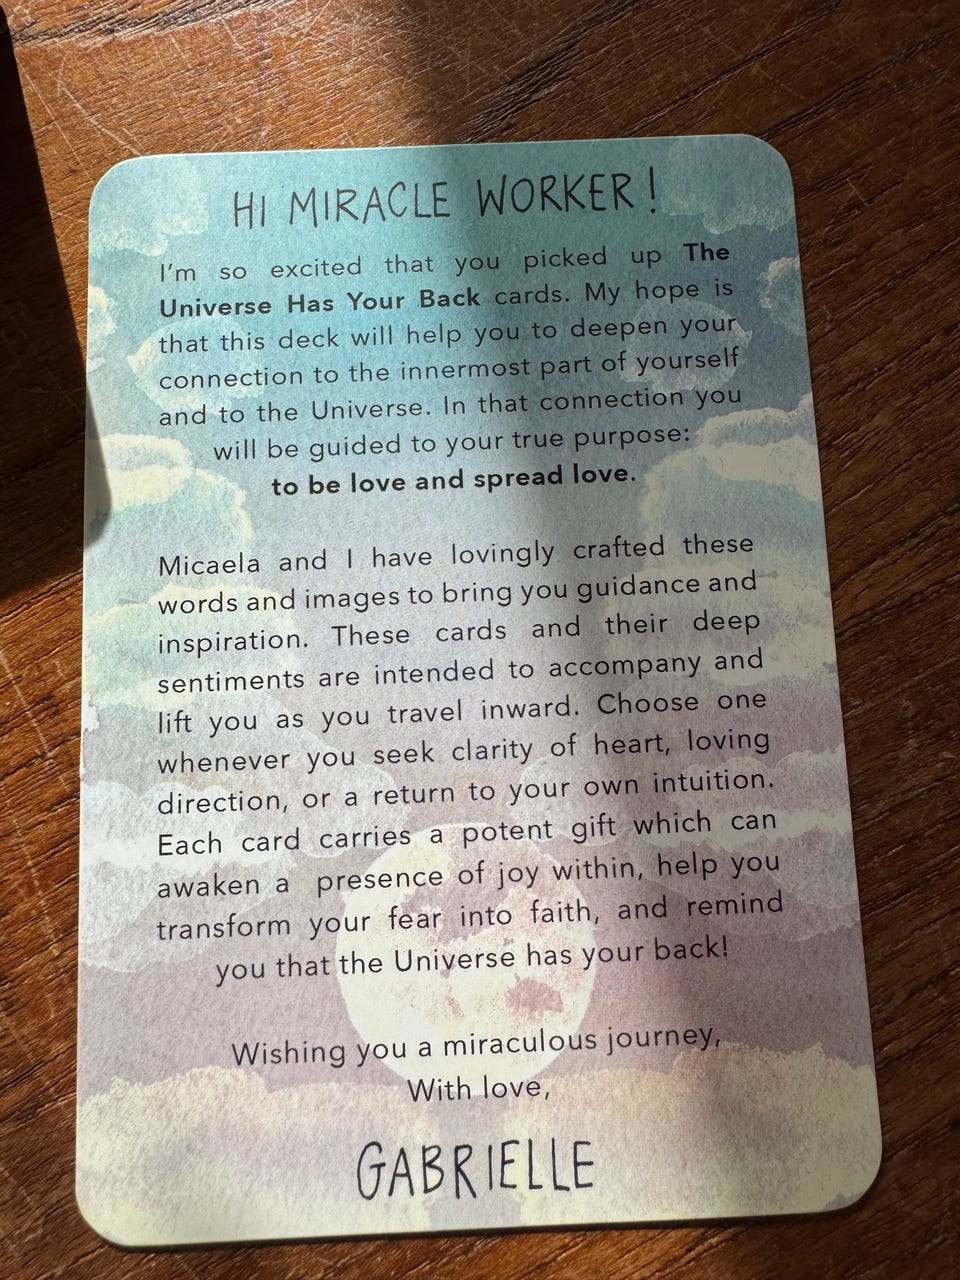 HI MIRACLE WORKER!
I'm so excited that you picked up The
Universe Has Your Back cards. My hope is
that this deck will help you to deepen your
connection to the innermost part of yourself
and to the Universe. In that connection you
will be guided to your true purpose:
to be love and spread love.
Micaela and I have lovingly crafted these
words and images to bring you guidance and
inspiration. These cards and their deep
sentiments are intended to accompany and
lift you as you travel inward. Choose one
whenever you seek clarity of heart, loving
direction, or a return to your own intuition.
Each card carries a potent gift which can
awaken a presence of joy within, help you
transform your fear into faith, and remind
you that the Universe has your back!
Wishing you a miraculous journey,
With love,
GABRIELLE